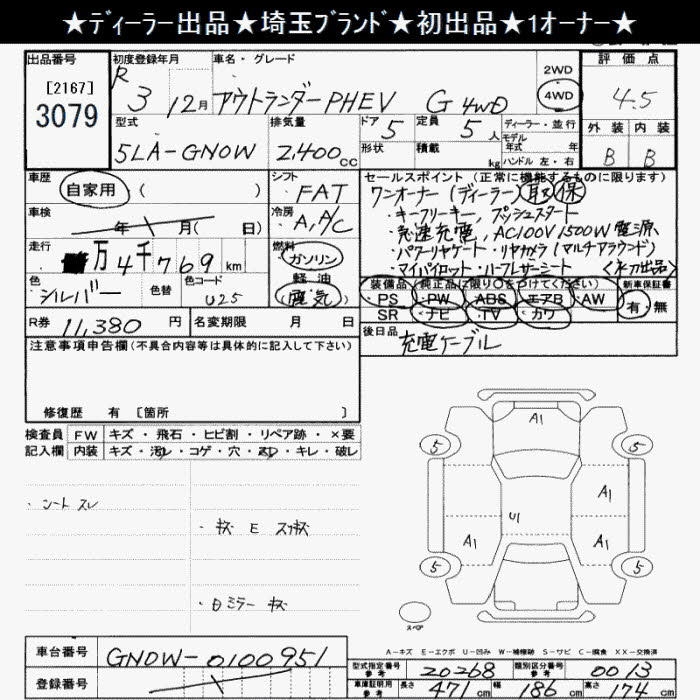 ★ディーラー出品★埼玉ブランド★初出品★1オーナー★
出品番号
[2167]
3079
初度登録年月
R
3 12月
車名・グレード
アウトランダーPHEV G 4WD
2WD
4WD
評価点
4.5
外装 内装
B B
型式
5LA-GN0W
排気量
2,400cc
ドア
5
形状
定員
5人
積載
kg
ディーラー・並行
モデル
年式 年
ハンドル 左・右
車歴
自家用 ( )
シフト
FAT
車検
年 月( 日)
冷房
A,A/C
走行
万4千769km
燃料
ガソリン
軽油
(電気)
色
シルバー
色替
色コード
U25
R券 11,380円
名変期限 月 日
セールスポイント(正常に機能するものに限ります)
ワンオーナー(ディーラー)取 保
・キーフリーキー、プッシュスタート
・急速充電、AC100V1500W電源
・パワーリヤゲート・リヤカメラ(マルチアラウンド)
・マイパイロット・ハーフレザーシート
装備品(純正品に限り○をつけてください)
・PS ・PW ・ABS ・エアB ・AW
SR ・ナビ ・TV ・カワ
新車保証書
有・無
後日品
充電ケーブル
注意事項申告欄(不具合内容等は具体的に記入して下さい)
修復歴 有 [箇所 ]
検査員
記入欄
FW キズ・飛石・ヒビ割・リペア跡・×要
内装 キズ・汚レ・コゲ・穴・スレ・キレ・破レ
・シートスレ
・ミラー
A1
5
5
A1
U1
A1
A1
5
5
スペア
A-キズ E-エクボ U-凹み W-補修跡 S-サビ C-腐食 XX-交換済
車台番号 GN0W-0100951
登録番号
型式指定番号
参考
20268
類別区分番号
参考
0013
車庫証明用
参考
長さ 471cm 幅 186cm 高さ 174cm